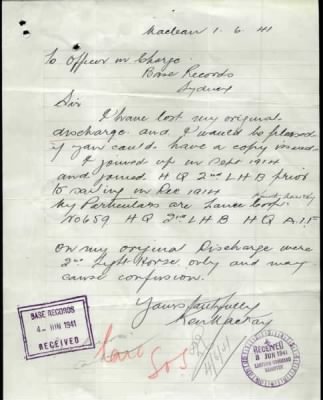 Maclean 1.6.41
To Officer in Charge
Base Records
Sydney
Sir
I have lost my original
discharge and I would be pleased
if you could have a copy issued
I joined up in Sept 1914
and joined H Q 2nd L H B prior
to sailing in Dec 1914
My Particulars are Lance Corp.
No 659 H Q 2nd L H B H Q A.I.F
On my original Discharge were
2nd Light Horse only and may
cause confusion.
Yours faithfully
BASE RECORDS
4 JUN 1941
RECEIVED
SOS
4/6/41
RECEIVED
JUN 1941
EASTERN COMMAND